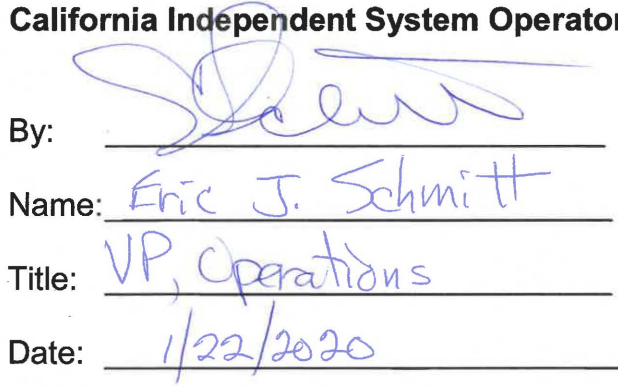 California Independent System Operator
By:
Name: Eric J. Schmitt
Title: VP, Operations
Date: 1/22/2020